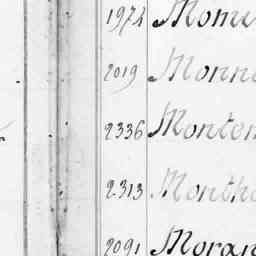 1974 Momm
2019 Monn
2336 Montem
2313 Montho
2091 Moran